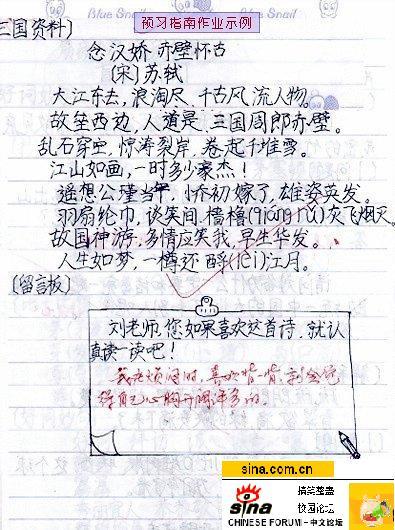 预习指南作业示例
三国资料)
念汉娇 赤壁怀古
(宋)苏轼
大江东去,浪淘尽、千古风流人物。
故垒西边,人道是、三国周郎赤壁。
乱石穿空,惊涛裂岸,卷起千堆雪。
江山如画,一时多少豪杰!
遥想公瑾当年,小乔初嫁了,雄姿英发。
羽扇纶巾,谈笑间,樯橹(qiáng rǔ)灰飞烟灭。
故国神游,多情应笑我,早生华发。
人生如梦,一樽还酹(lèi)江月。
(留言板)
刘老师,您如果喜欢这首诗,就认
真读一读吧!
我在烦闷时,喜欢背一背,就会觉
得自己心胸开阔许多的。
sina.com.cn
sina
搞笑整蛊
校园论坛
CHINESE FORUM-中文论坛